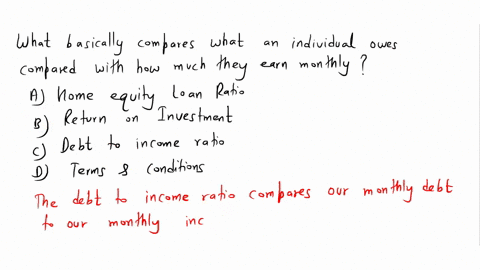 What basically compares what an individual owes
compared with how much they earn monthly?
A) Home equity Loan Ratio
B) Return on Investment
C) Debt to income ratio
D) Terms & conditions
The debt to income ratio compares our monthly debt
to our monthly inc